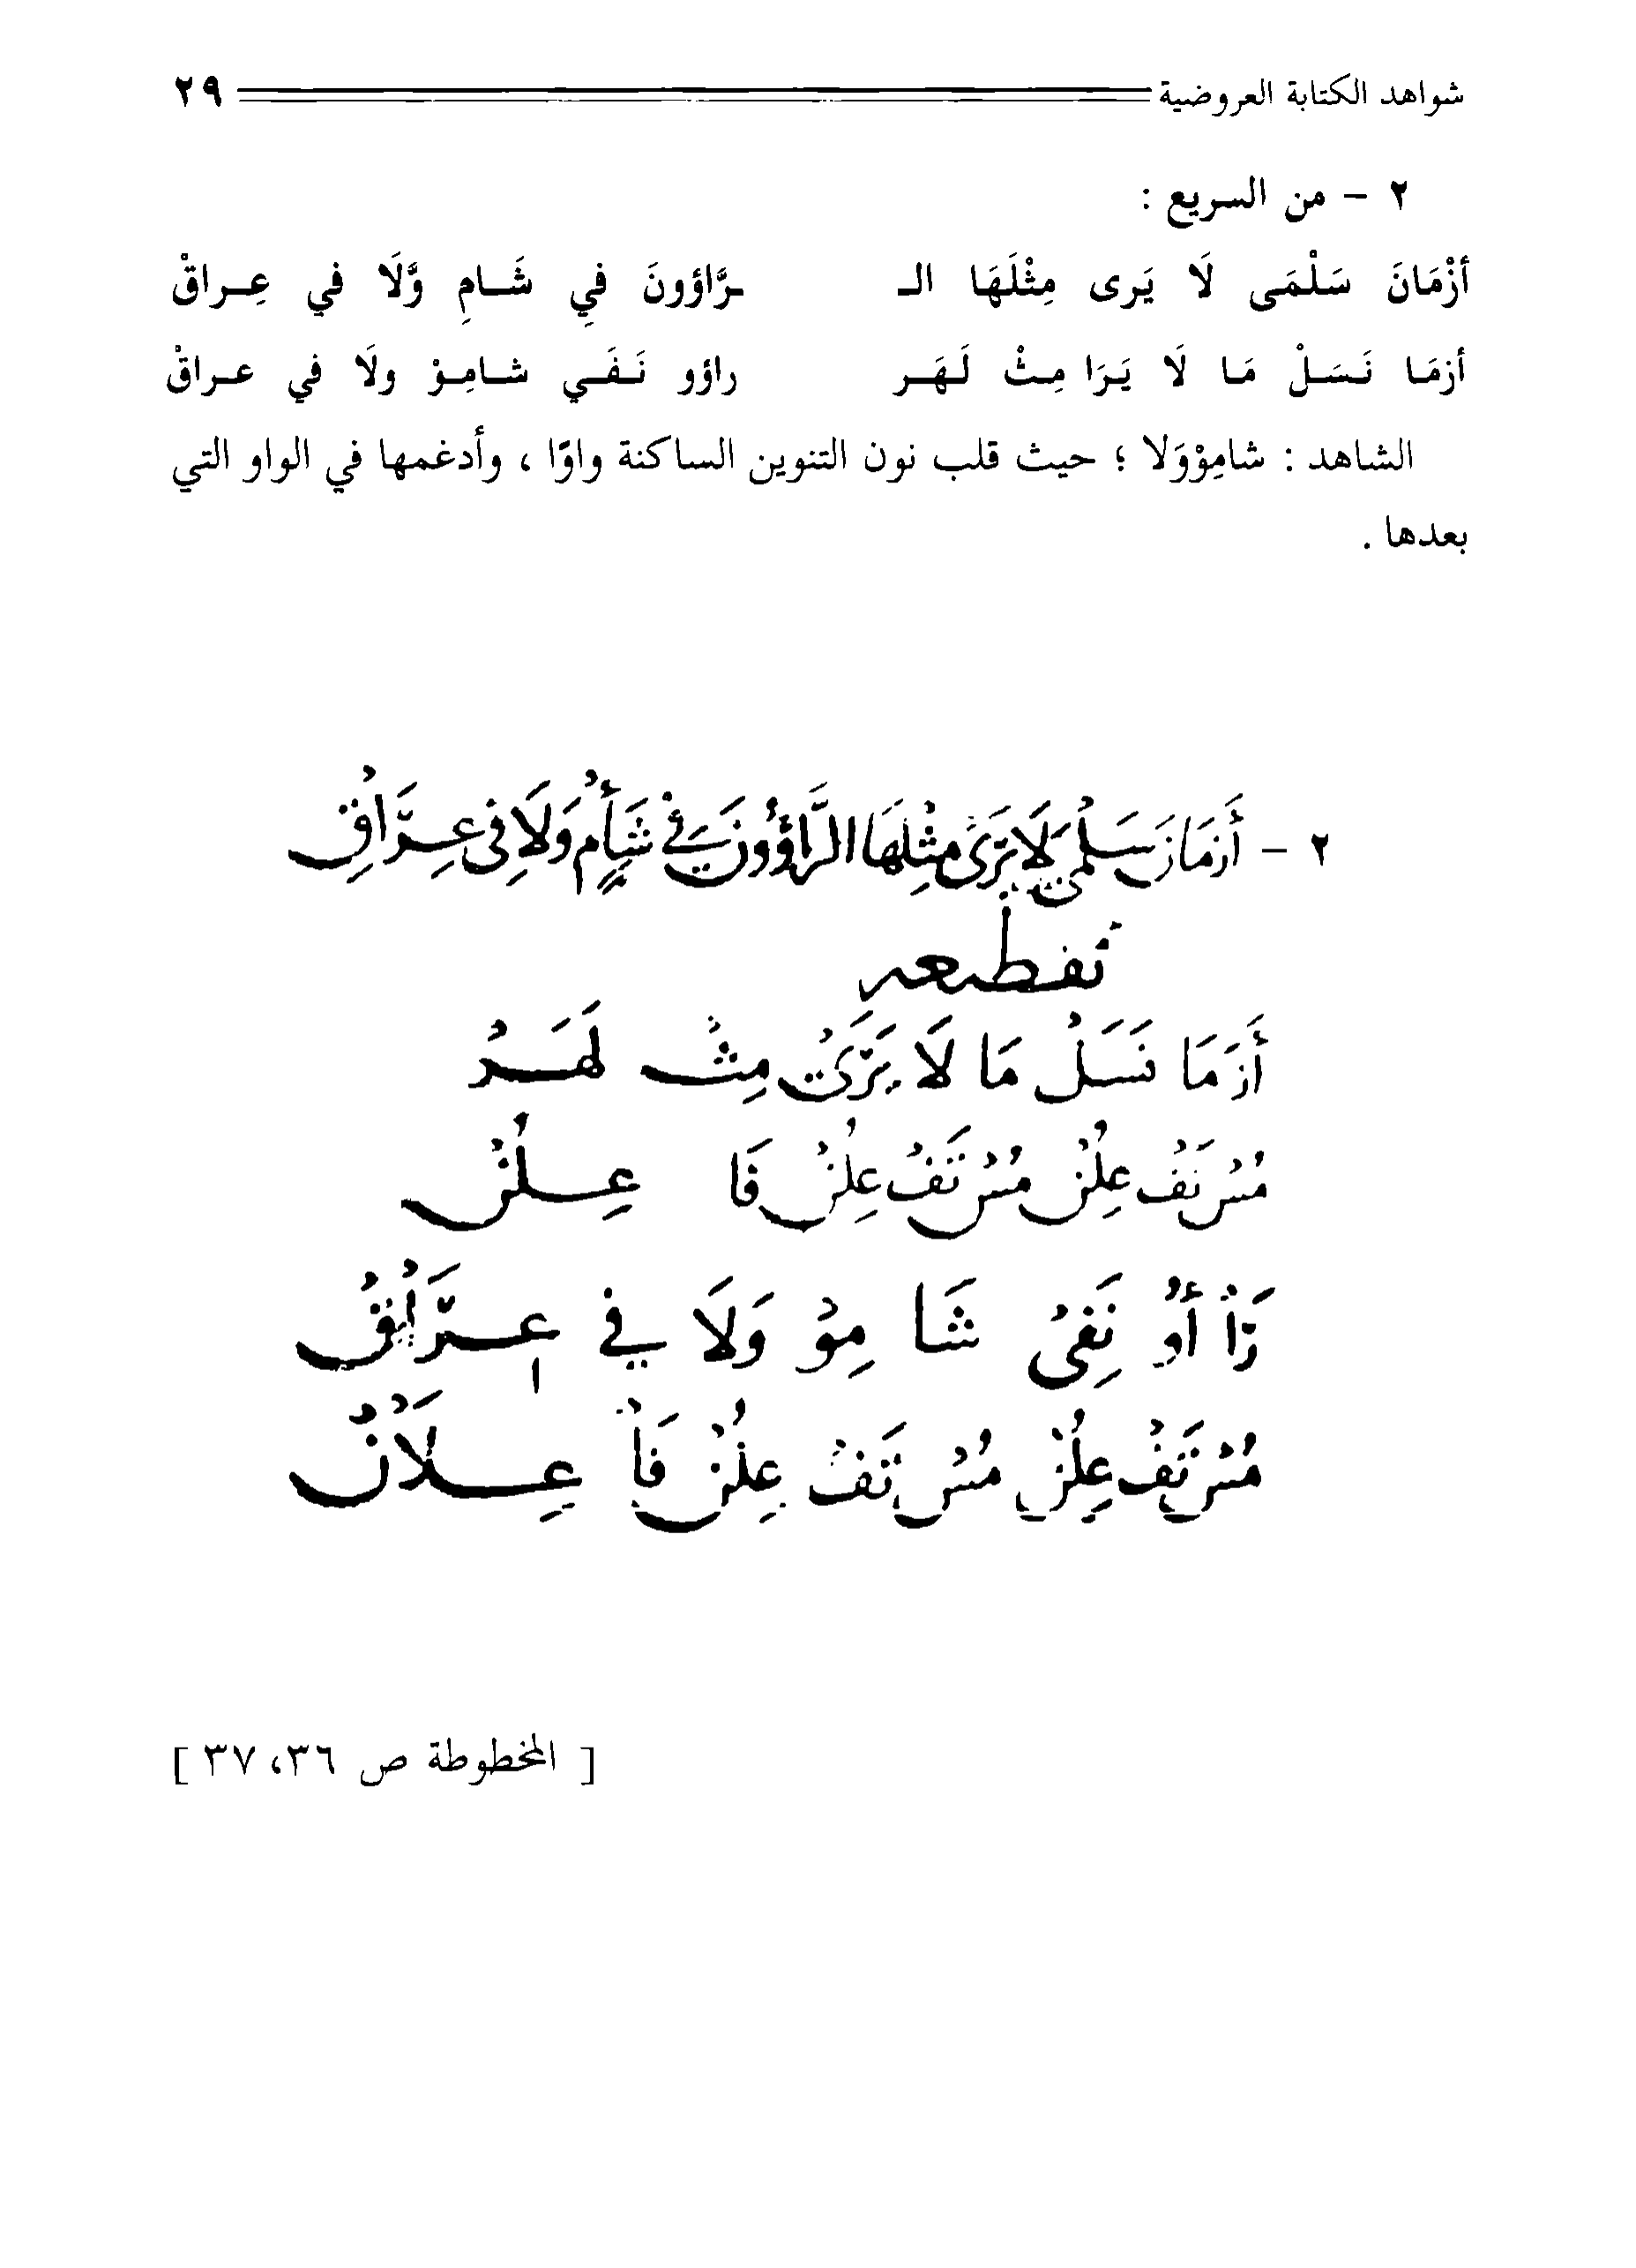 شواهد الكتابة العروضية ٢٩
٢ - من السريع :
أزْمَانَ سَلْمَى لَا يَرى مِثْلَهَا الـ ـرَّاؤونَ فِي شَـامٍ وَّلَا في عِـراقْ
أزمَا نَـسَـلْ مَا لَا يَـرَا مِـثْ لَـهَـر راؤو نَـفَـي شـامِـوْ ولَا في عـراقْ
الشاهد : شامِوْوَلا ؛ حيث قلب نون التنوين الساكنة واوًا ، وأدغمها في الواو التي
بعدها .
٢ - أَزمَانَ سَلْمَى لَا يَرَى مِثْلَهَا الرَّاؤُونَ فِي شَأْمٍ وَلَا فِي عِرَاقْ
تقطيعه
أَزمَا نَسَلْ مَا لَا يَرَىْ مِثْ لَهَرْ
مُسْ تَفْ عِلُنْ مُسْ تَفْ عِلُنْ فَا عِلُنْ
رَاْ أُوْ نَفِىْ شَا مِوْ وَلَا فِي عِرَاقْ
مُسْ تَفْ عِلُنْ مُسْ تَفْ عِلُنْ فَاْ عِلَانْ
[ المخطوطة ص ٣٦، ٣٧ ]